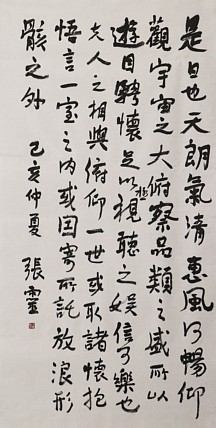 是日也天朗氣清惠風和暢仰
觀宇宙之大俯察品類之盛所以
遊目騁懷足以極視聽之娛信可樂也
夫人之相與俯仰一世或取諸懷抱
悟言一室之內或因寄所託放浪形
骸之外 己亥仲夏 張